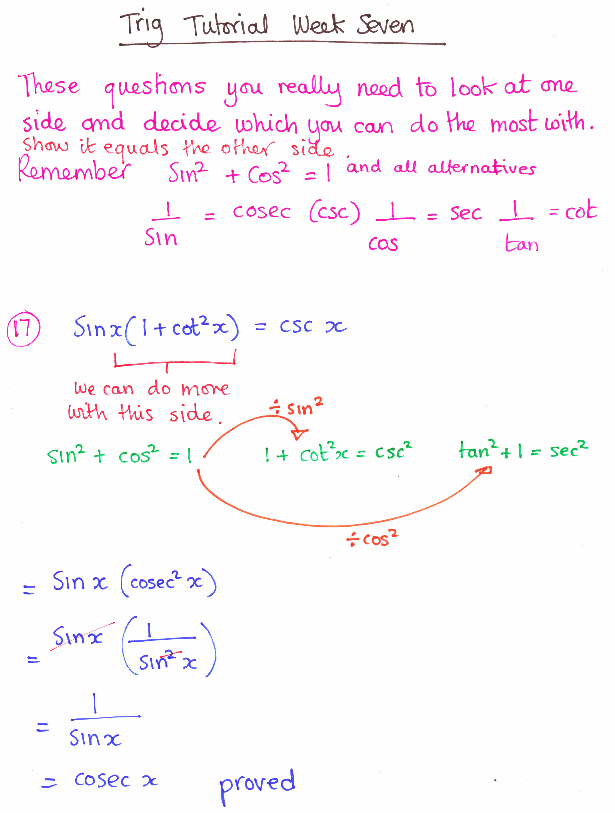 Trig Tutorial Week Seven
These questions you really need to look at one
side and decide which you can do the most with.
Show it equals the other side.
Remember Sin² + Cos² = 1 and all alternatives
1/Sin = cosec (csc) 1/cos = sec 1/tan = cot
17 Sinx(1 + cot²x) = csc x
We can do more
with this side.
÷ sin²
sin² + cos² = 1 1 + cot²x = csc² tan² + 1 = sec²
÷ cos²
= Sin x (cosec² x)
= Sinx (1/Sin² x)
= 1/Sinx
= cosec x proved